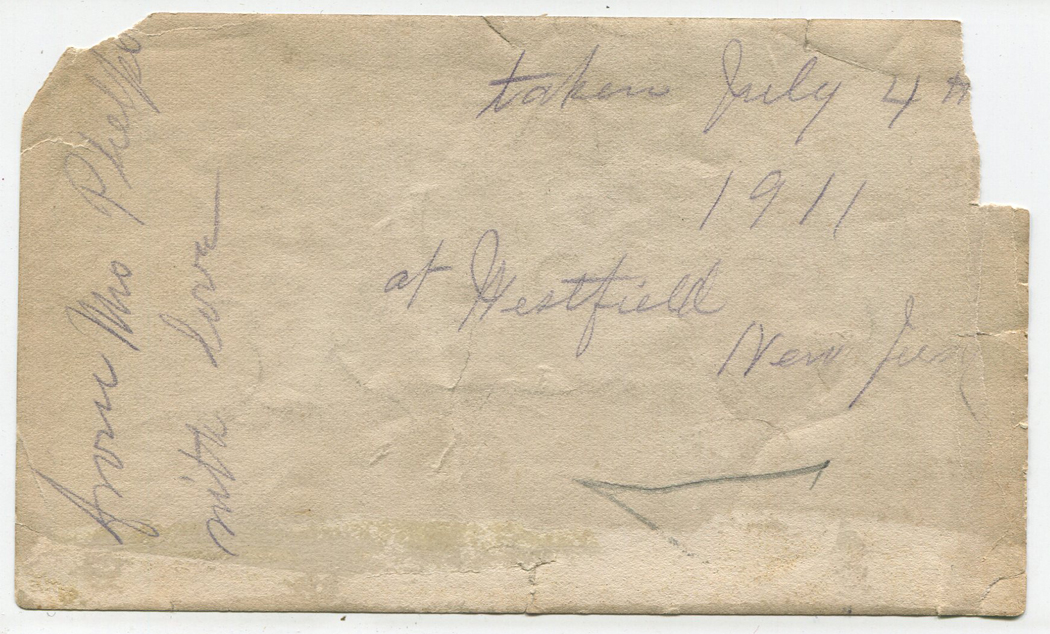 taken July 4th
1911
at Westfield
New Jers
from Mrs Phelps
with love